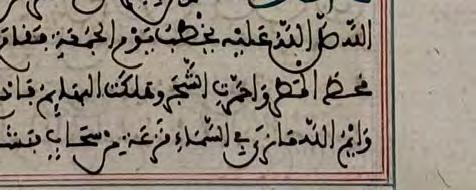 الله صلى الله عليه يخطب يوم الجمعة فقام
قحط المطر واحمرت الشجر وهلكت البهايم
وايم الله ما نرى في السماء قزعة من سحاب